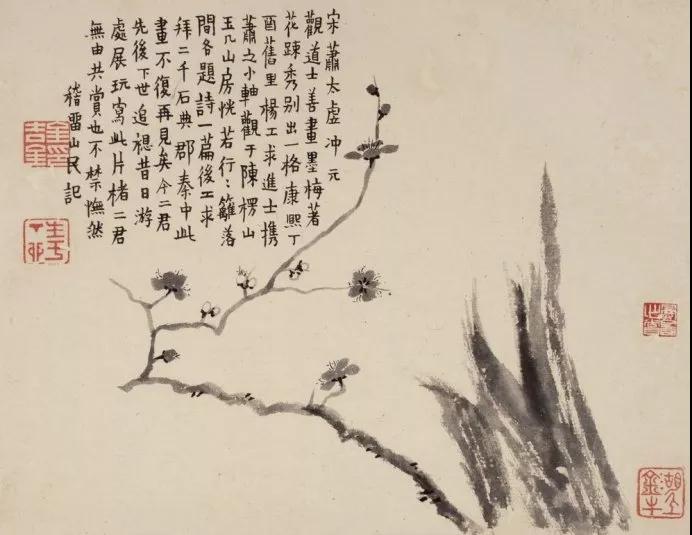 宋蕭太虛冲元
觀道士善畫墨梅著
花踈秀别出一格康熙丁
酉舊里楊工求進士携
蕭之小軸觀于陳楞山
玉几山房恍若行〻籬落
間各題詩一篇後工求
拜二千石典郡秦中此
畫不復再見矣今二君
先後下世追想昔日游
處展玩寫此片楮二君
無由共賞也不禁憮然
稽畱山民記
金吉金印
生于丁卯